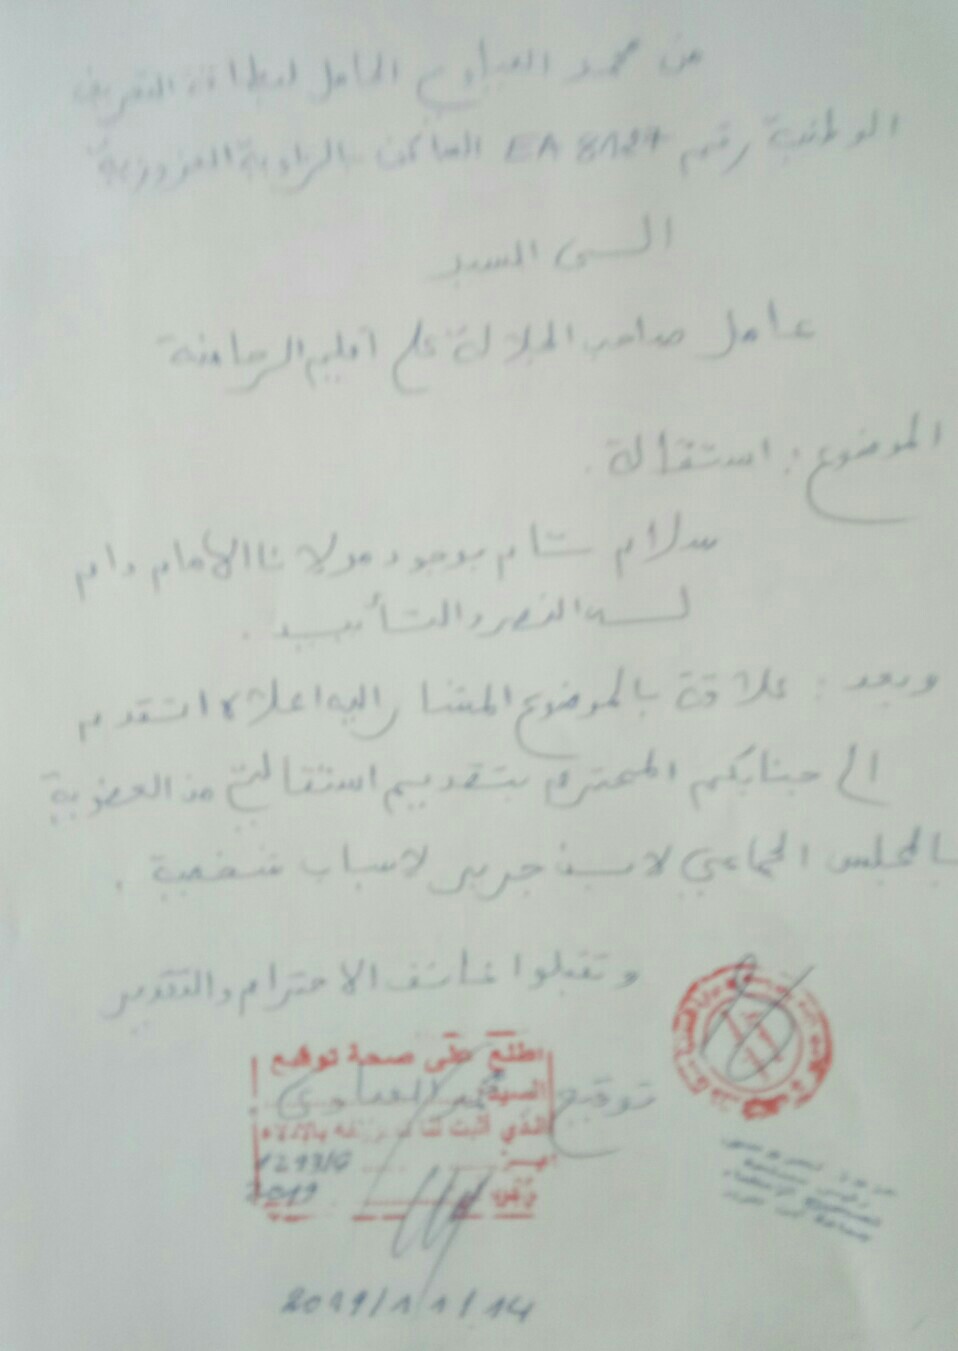 من محمد العباوي الحامل لبطاقة التعريف
الوطنية رقم EA 8127 الساكن بالزاوية العزوزية
الــى السيد
عامل صاحب الجلالة على اقليم الرحامنة
الموضوع : استقالة .
سلام تـام بوجود مولانا الامام دام
لــه النصر والتــأييــد .
وبعد : علاقة بالموضوع المشار اليه اعلاه اتقدم
الى جنابكم المحترم بتقديم استقالتي من العضوية
بالمجلس الجماعي لابــن جرير لاسباب شخصية .
و تقبلوا فائق الاحترام والتقدير
اطلع على صحة توقيع
توقيع
السيد محمد العباوي
الذي أثبت لنا
2019
2019/11/14